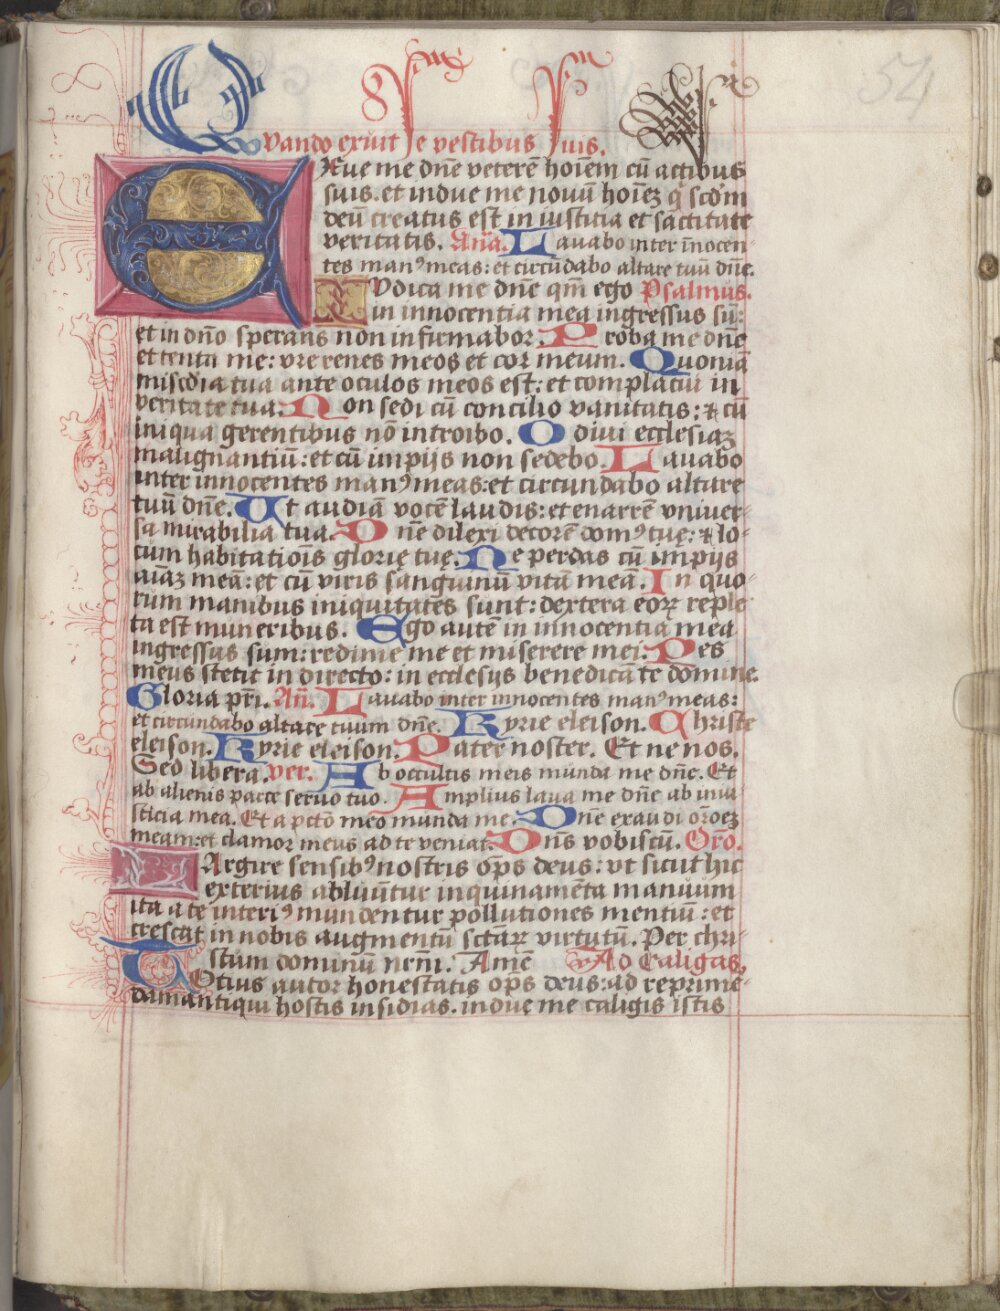 54
Quando exuit se vestibus suis.
Exue me dn̄e veterē hoīem cū actibus
suis. et indue me novū hoīeꝫ q̇ scd̄m
deū creatus est in iustitia et sāctitate
veritatis. Añ̄a. Lavabo inter īnocen-
tes manꝰ meas: et circūdabo altare tuū dn̄e.
Iudica me dn̄e qm̄ ego Psalmus.
in innocentia mea ingressus sū:
et in dn̄o sperans non infirmabor. Proba me dn̄e
et tenta me: vre renes meos et cor meum. Quoniā
mīscd̄ia tua ante oculos meos est: et complacui in
veritate tua. Non sedi cū concilio vanitatis: & cū
iniqua gerentibus nō introibo. Odivi ecclesiaꝫ
malignantiū: et cū impijs non sedebo. Lavabo
inter innocentes manꝰ meas: et circundabo altare
tuū dn̄e. Ut audiā vocē laudis: et enarrē vniuer-
sa mirabilia tua. Dn̄e dilexi decorē domꝰ tuę: & lo-
cum habitatiōis glorię tuę. Ne perdas cū impijs
aīaꝫ meā: et cū viris sanguinū vitā meā. In quo-
rum manibus iniquitates sunt: dextera eoꝝ reple
ta est muneribus. Ego autē in innocentia mea
ingressus sum: redime me et miserere mei. Pes
meus stetit in directo: in ecclesijs benedicā te domine.
Gloria pr̄i. Añ. Lavabo inter innocentes manꝰ meas:
et circūndabo altare tuum dn̄e. Kyrie eleison. Christe
eleison. Kyrie eleison. Pater noster. Et ne nos.
Sed libera. ver. Ab occultis meis munda me dn̄e. Et
ab alienis parce seruo tuo. Amplius laua me dn̄e ab iniu
sticia mea. Et a pctō meo munda me. Dn̄e exaudi or̄oeꝫ
meam: et clamor meus ad te veniat. Dn̄s vobiscū. Or̄o.
Largire sensibꝰ nostris op̄s deus: vt sicut hic
exterius abluūntur inquinamēta manuum
ita a te interiꝰ mundentur pollutiones mentiū: et
crescat in nobis augmentū sctāꝝ virtutū. Per chri-
stum dominū nrm̄. Amē Ad Caligas,
Totius autor honestatis op̄s deus: ad reprimē-
da mantiqui hostis insidias. indue me caligis istis